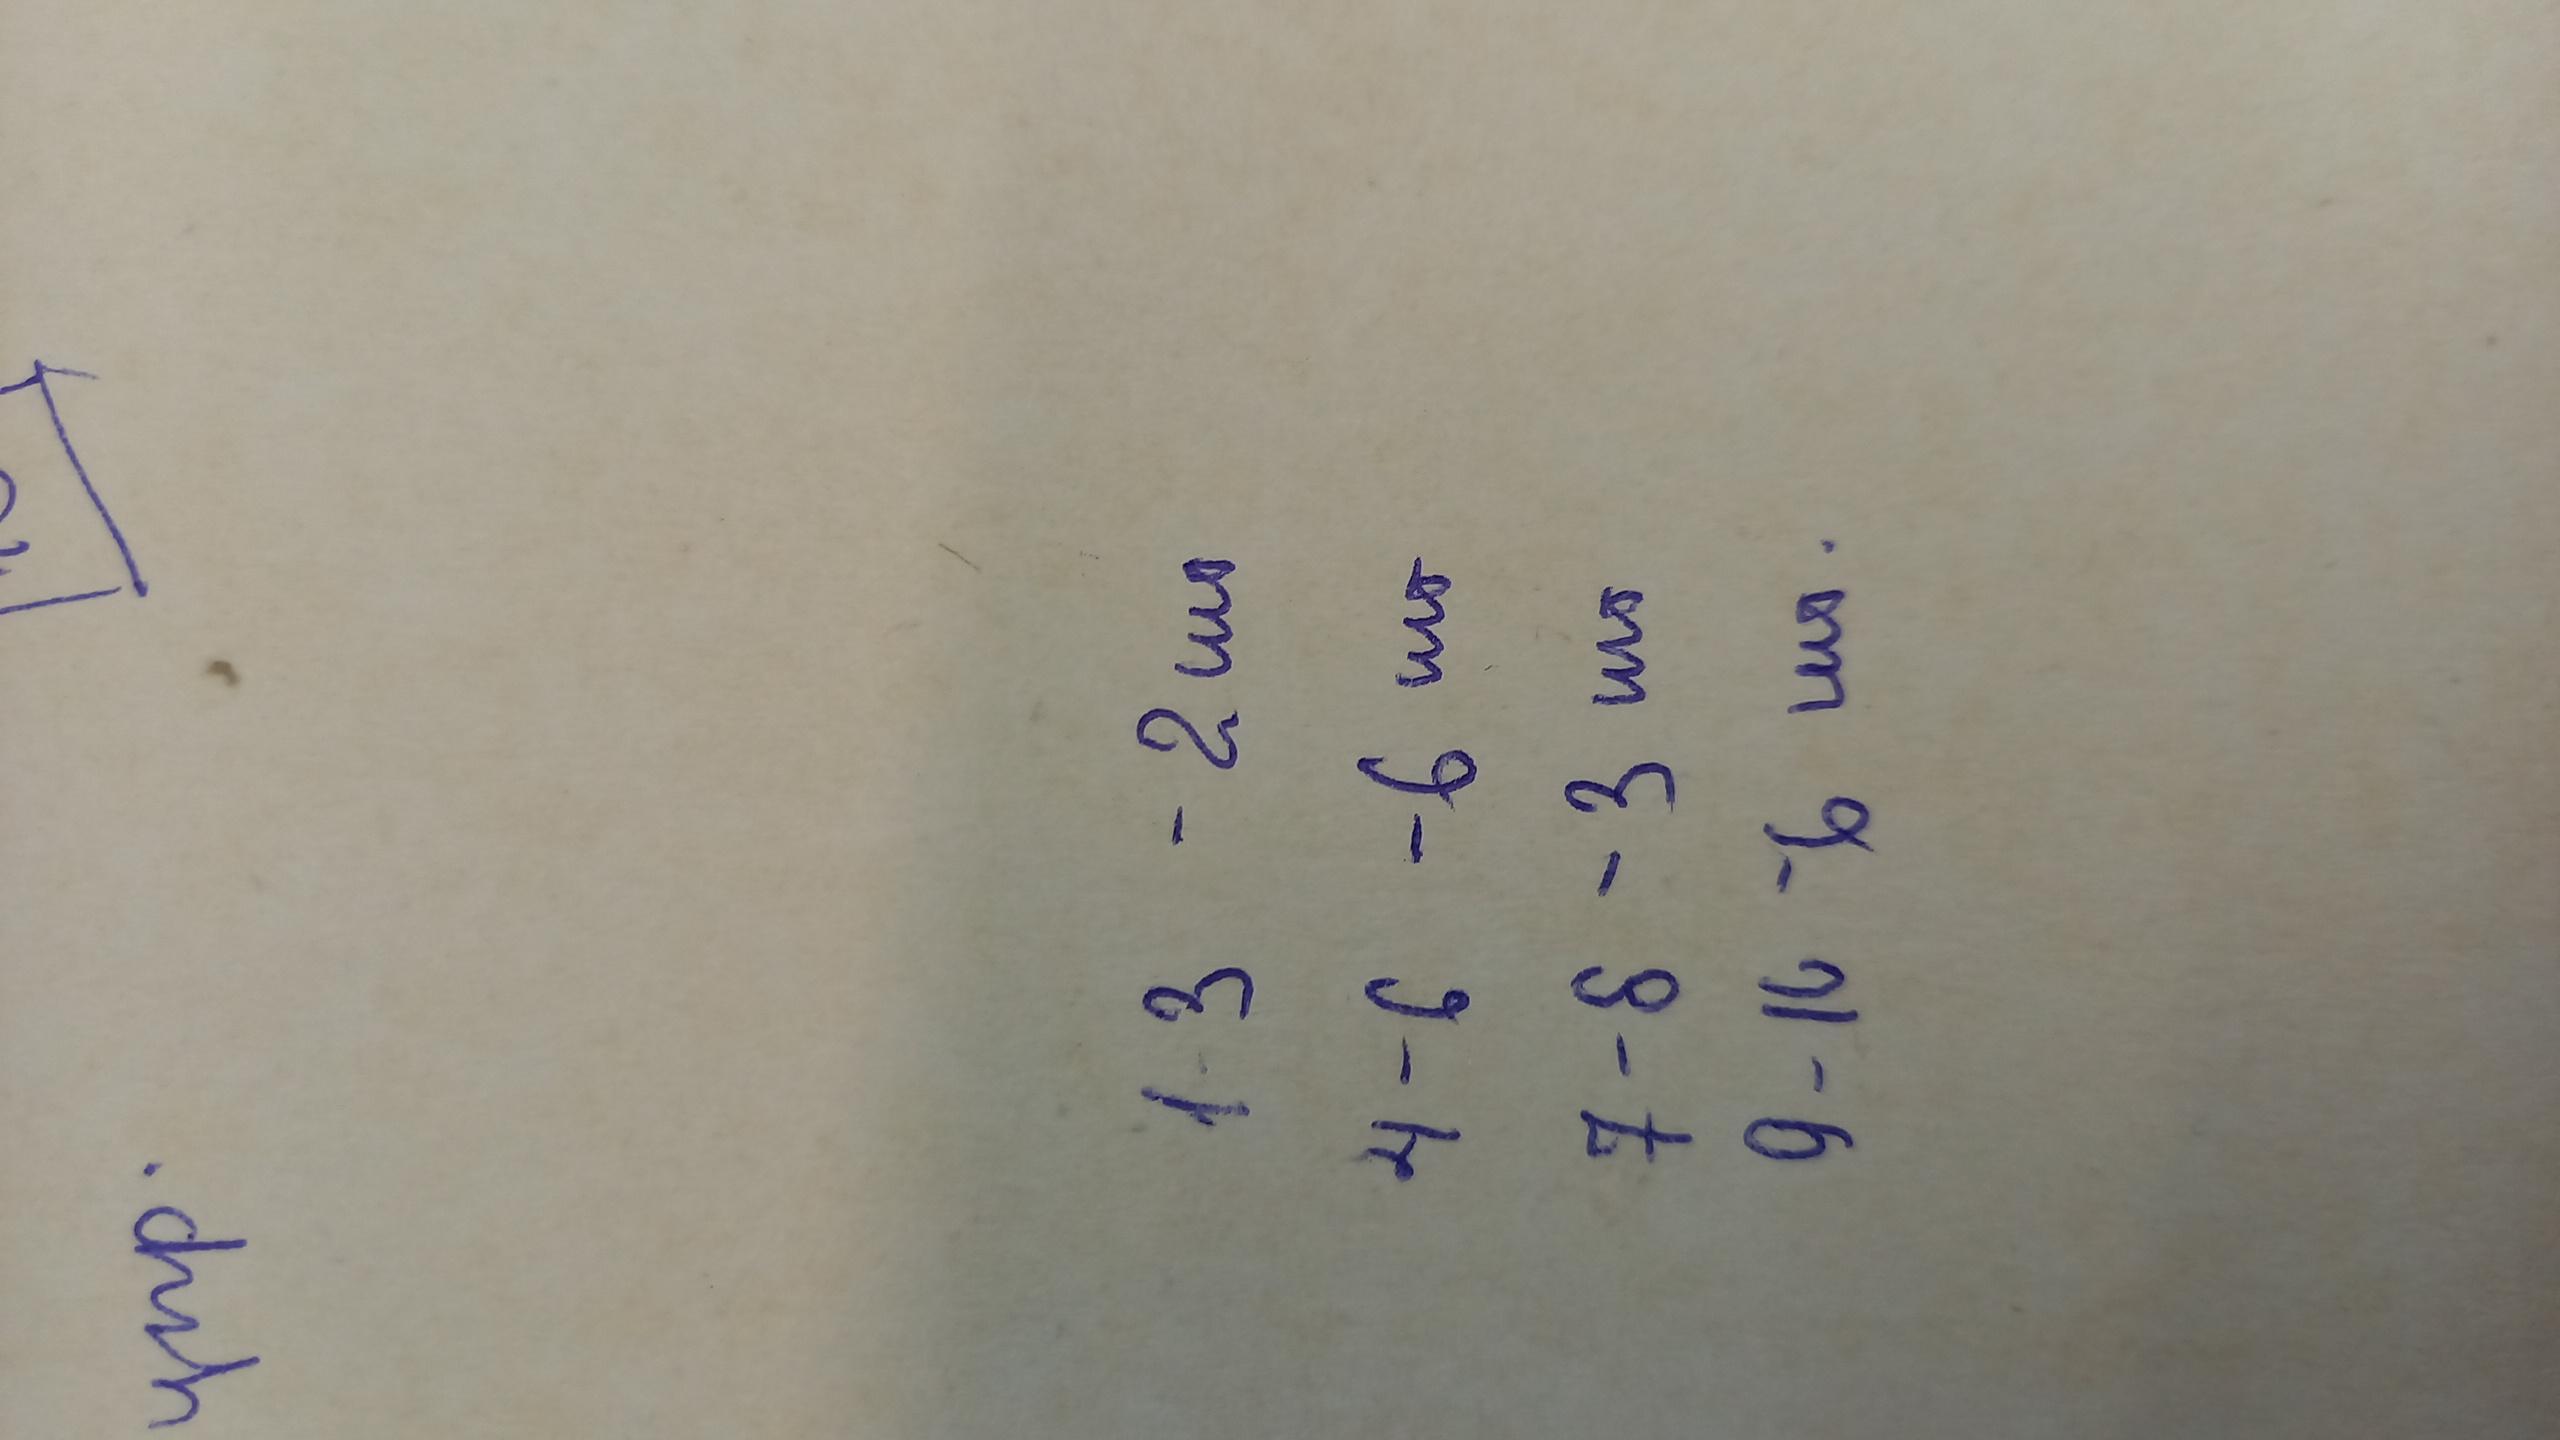 упр.
1-3 - 2 шт
4-6 - 6 шт
7-8 - 3 шт
9-10 - 6 шт.